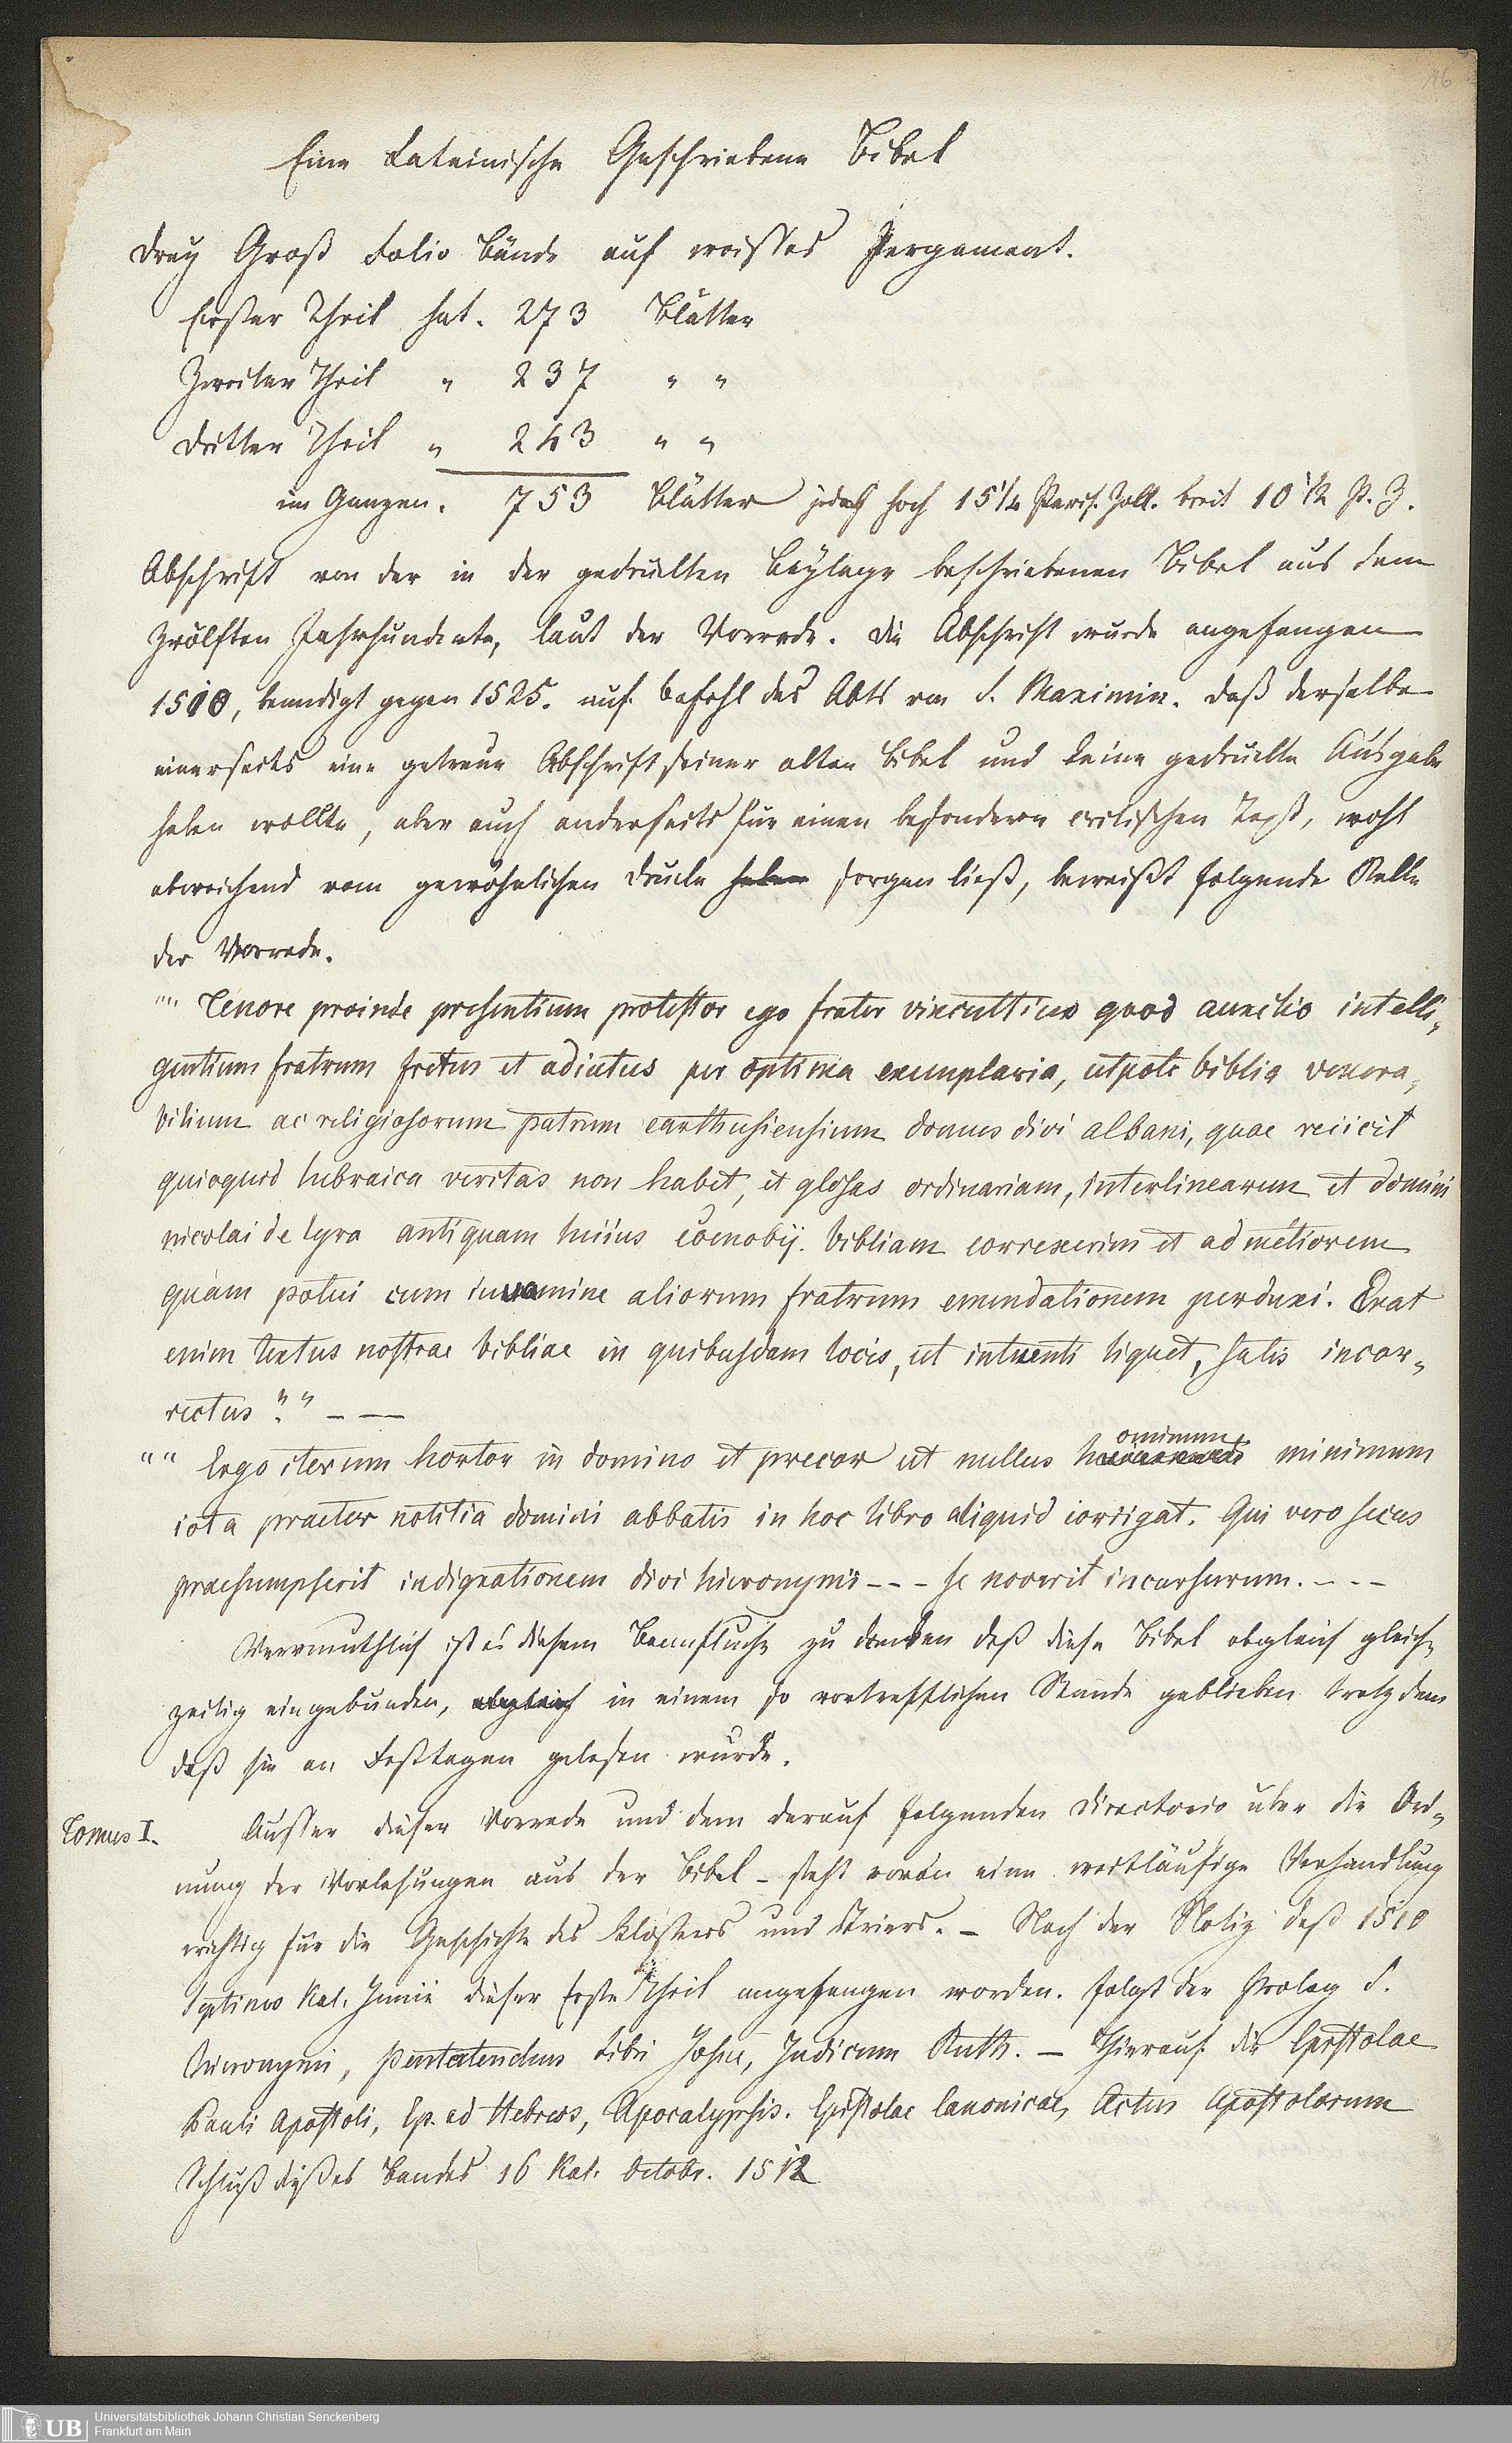 16
Eine Lateinische Geschriebene Bibel
Drey Groß Folio Bände auf weisses Pergament.
Erster Theil hat. 273 Blätter
Zweiter Theil " 237 " "
Dritter Theil " 243 " "
im Ganzen. 753 Blätter jedes hoch 15 1/4 Paris. Zoll. breit 10 1/2 P. Z.
Abschrift von der in der gedruckten Beylage beschriebenen Bibel aus dem
zwölften Jahrhunderte, laut der Vorrede. Die Abschrift wurde angefangen
1510, beendigt gegen 1525. auf Befehl des Abts von S. Maximin. Daß derselbe
einerseits eine getreue Abschrift seiner alten Bibel und keine gedruckte Ausgabe
haben wollte, aber auch anderseits für einen besondern critischen Text, wohl
abweichend vom gewöhnlichen Drucke haben sorgen ließ, beweißt folgende Stelle
der Vorrede.
"" Tenore proinde presentium protestor ego frater quod auxilio intelli-
gentium fratrum fretus et adiutus per optima exemplaria, utpote biblia venera-
bilium ac religiosorum patrum carthusiensium domus divi albani, quae reiicit
quicquid hebraica veritas non habet, et glosas ordinariam, interlinearem et domini
nicolai de lyra antiquam huius coenobij. bibliam correxerim et ad meliorem
quam potui cum iuvamine aliorum fratrum emendationem perduxi. Erat
enim textus nostrae bibliae in quibusdam locis, ut intuenti liquet, satis incor-
rectus "." – —
"" Ergo iterum hortor in domino et precor ut nullus hominum minimum
iota praeter notitia domini abbatis in hoc libro aliquid corrigat. Qui vero secus
praesumpserit indignationem divi hieronymi - - - se noverit incursurum. - - -
Vermuthlich ist es diesem Bannfluche zu danken daß diese Bibel obgleich gleich-
zeitig eingebunden, obgleich in einem so vortrefflichen Stande geblieben trotz dem
daß sie an Festtagen gelesen wurde.
Tomus I. Ausser dieser Vorrede und dem darauf folgenden Directorio über die Ord-
nung der Vorlesungen aus der Bibel – steht voran eine weitläufige Verhandlung
wichtig für die Geschichte des Klosters und Triers. – Nach der Notiz daß 1510
Septimo Kal. Junii dieser Erste Theil angefangen worden. folgt der Prolog S.
Hieronymi, Pentateuchus Libri Josue, Judicum Ruth. – Hierauf die Epistolae
Pauli Apostoli, Ep. ad Hebreos, Apocalypsis. Epistolae Canonicae, Actus Apostolorum
Schluß dießes Bandes 16 Kal. Octobr. 1512
Universitätsbibliothek Johann Christian Senckenberg
Frankfurt am Main
UB